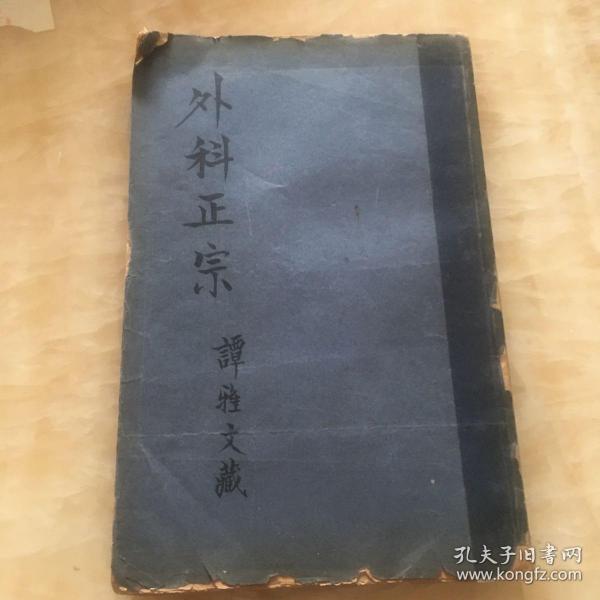 外科正宗
譚雅文藏
孔夫子旧書网
www.kongfz.com